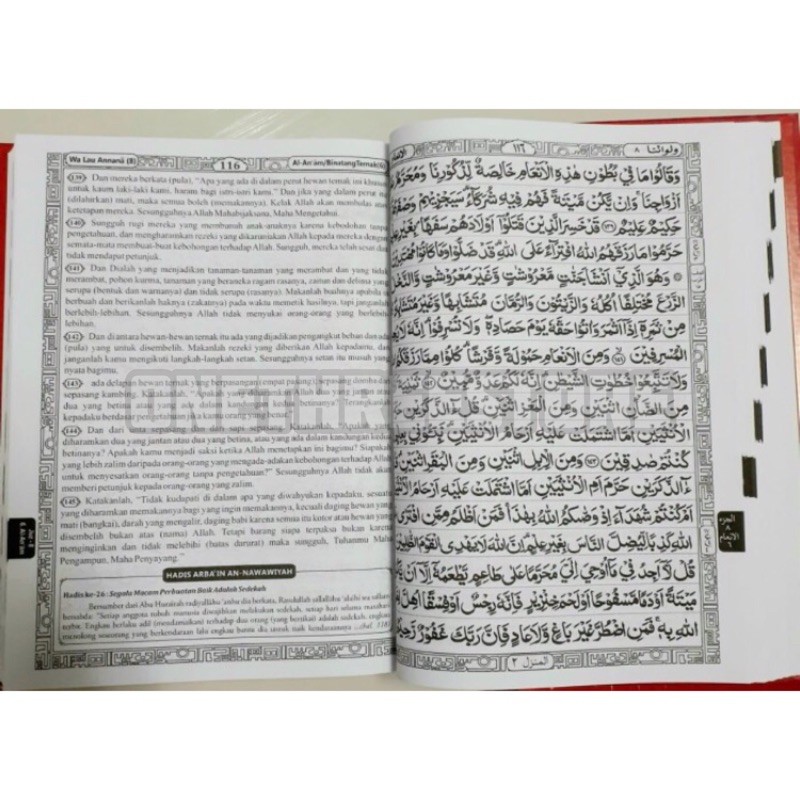 Wa Lau Annanā (8)
116
Al-An'ām/Binatang Ternak (6)
139 Dan mereka berkata (pula), "Apa yang ada di dalam perut hewan ternak ini khusus
untuk kaum laki-laki kami, haram bagi istri-istri kami." Dan jika yang dalam perut itu
(dilahirkan) mati, maka semua boleh (memakannya). Kelak Allah akan membalas atas
ketetapan mereka. Sesungguhnya Allah Mahabijaksana, Maha Mengetahui.
140 Sungguh rugi mereka yang membunuh anak-anaknya karena kebodohan tanpa
pengetahuan, dan mengharamkan rezeki yang dikaruniakan Allah kepada mereka dengan
semata-mata membuat-buat kebohongan terhadap Allah. Sungguh, mereka telah sesat dan
tidak mendapat petunjuk.
141 Dan Dialah yang menjadikan tanaman-tanaman yang merambat dan yang tidak
merambat, pohon kurma, tanaman yang beraneka ragam rasanya, zaitun dan delima yang
serupa (bentuk dan warnanya) dan tidak serupa (rasanya). Makanlah buahnya apabila ia
berbuah dan berikanlah haknya (zakatnya) pada waktu memetik hasilnya, tapi janganlah
berlebih-lebihan. Sesungguhnya Allah tidak menyukai orang-orang yang berlebih-
lebihan.
142 Dan di antara hewan-hewan ternak itu ada yang dijadikan pengangkut beban dan ada
(pula) yang untuk disembelih. Makanlah rezeki yang diberikan Allah kepadamu, dan
janganlah kamu mengikuti langkah-langkah setan. Sesungguhnya setan itu musuh yang
nyata bagimu.
143 ada delapan hewan ternak yang berpasangan (empat pasang); sepasang domba dan
sepasang kambing.
dua yang betina yang
kepadaku berdasar pengetahuan jika kamu orang yang benar."
144 Dan dari
diharamkan dua yang jantan atau dua yang betina, atau yang ada dalam kandungan kedua
betinanya? Apakah kamu menjadi saksi ketika Allah menetapkan ini bagimu? Siapakah
yang lebih zalim daripada orang-orang yang mengada-adakan kebohongan terhadap Allah
untuk menyesatkan orang-orang tanpa pengetahuan?" Sesungguhnya Allah tidak akan
memberi petunjuk kepada orang-orang yang zalim.
145 Katakanlah, "Tidak kudapati di dalam apa yang diwahyukan kepadaku, sesuatu
yang diharamkan memakannya bagi yang ingin memakannya, kecuali daging hewan yang
mati (bangkai), darah yang mengalir, daging babi karena semua itu kotor atau hewan yang
disembelih bukan atas (nama) Allah. Tetapi barang siapa terpaksa bukan karena
menginginkan dan tidak melebihi (batas darurat) maka sungguh, Tuhanmu Maha
Pengampun, Maha Penyayang."
HADIS ARBA'IN AN-NAWAWIYAH
Hadis ke-26 : Segala Macam Perbuatan Baik Adalah Sedekah
Bersumber dari Abu Hurairah radiyallāhu 'anhu dia berkata, Rasulullah sallallāhu 'alaihi wa sallam
bersabda: "Setiap anggota tubuh manusia diwajibkan melakukan sedekah, setiap hari selama matahari
terbit. Engkau berlaku adil (mendamaikan) terhadap dua orang (yang bertikai) adalah sedekah, engkau
menolong seseorang yang berkendaraan lalu engkau bantu dia untuk naik kendaraannya
ولواننا ٨
١١٦
الانعام
وَقَالُوا مَا فِي بُطُونِ هٰذِهِ الْاَنْعَامِ خَالِصَةٌ لِّذُكُورِنَا وَمُحَرَّمٌ
اَزْوَاجِنَا وَاِنْ يَّكُنْ مَّيْتَةً فَهُمْ فِيْهِ شُرَكَاۤءُ سَيَجْزِيْهِمْ وَصْفَهُمْ
حَكِيْمٌ عَلِيْمٌ ١٣٩ قَدْ خَسِرَ الَّذِيْنَ قَتَلُوْا اَوْلَادَهُمْ سَفَهًا بِغَيْرِ
حَرَّمُوْا مَا رَزَقَهُمُ اللّٰهُ افْتِرَاۤءً عَلَى اللّٰهِ قَدْ ضَلُّوْا وَمَا كَانُوْا مُهْتَدِيْنَ
وَهُوَ الَّذِيْ اَنْشَاَ جَنّٰتٍ مَّعْرُوْشٰتٍ وَّغَيْرَ مَعْرُوْشٰتٍ وَّالنَّخْلَ
الزَّرْعَ مُخْتَلِفًا اُكُلُهٗ وَالزَّيْتُوْنَ وَالرُّمَّانَ مُتَشَابِهًا وَّغَيْرَ مُتَشَابِهٍ
مِنْ ثَمَرِهٖ اِذَا اَثْمَرَ وَاٰتُوْا حَقَّهٗ يَوْمَ حَصَادِهٖ وَلَا تُسْرِفُوْا اِنَّهٗ لَا
الْمُسْرِفِيْنَ ١٤١ وَمِنَ الْاَنْعَامِ حَمُوْلَةً وَّفَرْشًا كُلُوْا مِمَّا رَزَقَكُمُ
وَلَا تَتَّبِعُوْا خُطُوٰتِ الشَّيْطٰنِ اِنَّهٗ لَكُمْ عَدُوٌّ مُّبِيْنٌ ١٤٢
مِنَ الضَّأْنِ اثْنَيْنِ وَمِنَ الْمَعْزِ اثْنَيْنِ قُلْ ءٰۤالذَّكَرَيْنِ
الْاُنْثَيَيْنِ اَمَّا اشْتَمَلَتْ عَلَيْهِ اَرْحَامُ الْاُنْثَيَيْنِ نَبِّئُوْنِيْ
كُنْتُمْ صٰدِقِيْنَ ١٤٣ وَمِنَ الْاِبِلِ اثْنَيْنِ وَمِنَ الْبَقَرِ اثْنَيْنِ
ءٰۤالذَّكَرَيْنِ حَرَّمَ اَمِ الْاُنْثَيَيْنِ اَمَّا اشْتَمَلَتْ عَلَيْهِ اَرْحَامُ الْاُنْثَيَيْنِ
اَمْ كُنْتُمْ شُهَدَاۤءَ اِذْ وَصّٰىكُمُ اللّٰهُ بِهٰذَا فَمَنْ اَظْلَمُ مِمَّنِ افْتَرٰى
اللّٰهِ كَذِبًا لِّيُضِلَّ النَّاسَ بِغَيْرِ عِلْمٍ اِنَّ اللّٰهَ لَا يَهْدِى الْقَوْمَ الظّٰلِمِيْنَ
قُلْ لَّاۤ اَجِدُ فِيْ مَاۤ اُوْحِيَ اِلَيَّ مُحَرَّمًا عَلٰى طَاعِمٍ يَّطْعَمُهٗٓ اِلَّاۤ اَنْ
مَيْتَةً اَوْ دَمًا مَّسْفُوْحًا اَوْ لَحْمَ خِنْزِيْرٍ فَاِنَّهٗ رِجْسٌ اَوْ فِسْقًا اُهِلَّ
اللّٰهِ بِهٖ فَمَنِ اضْطُرَّ غَيْرَ بَاغٍ وَّلَا عَادٍ فَاِنَّ رَبَّكَ غَفُوْرٌ رَّحِيْمٌ
المنزل ٢
الجزء
٨
الانعام
٦